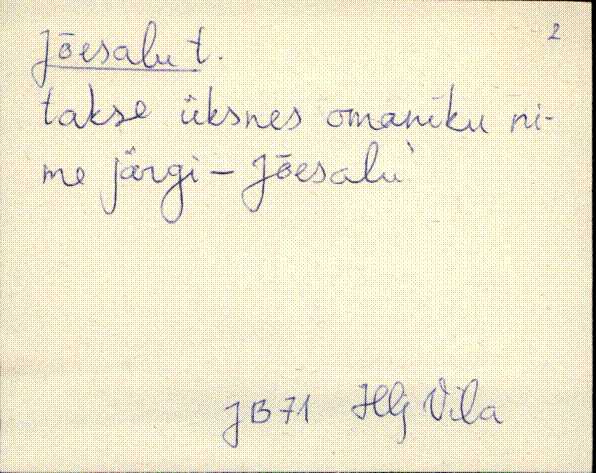 2
Jõesalu t.
takse üksnes omaniku ni-
me järgi – Jõesalu
JB71 HG Vila